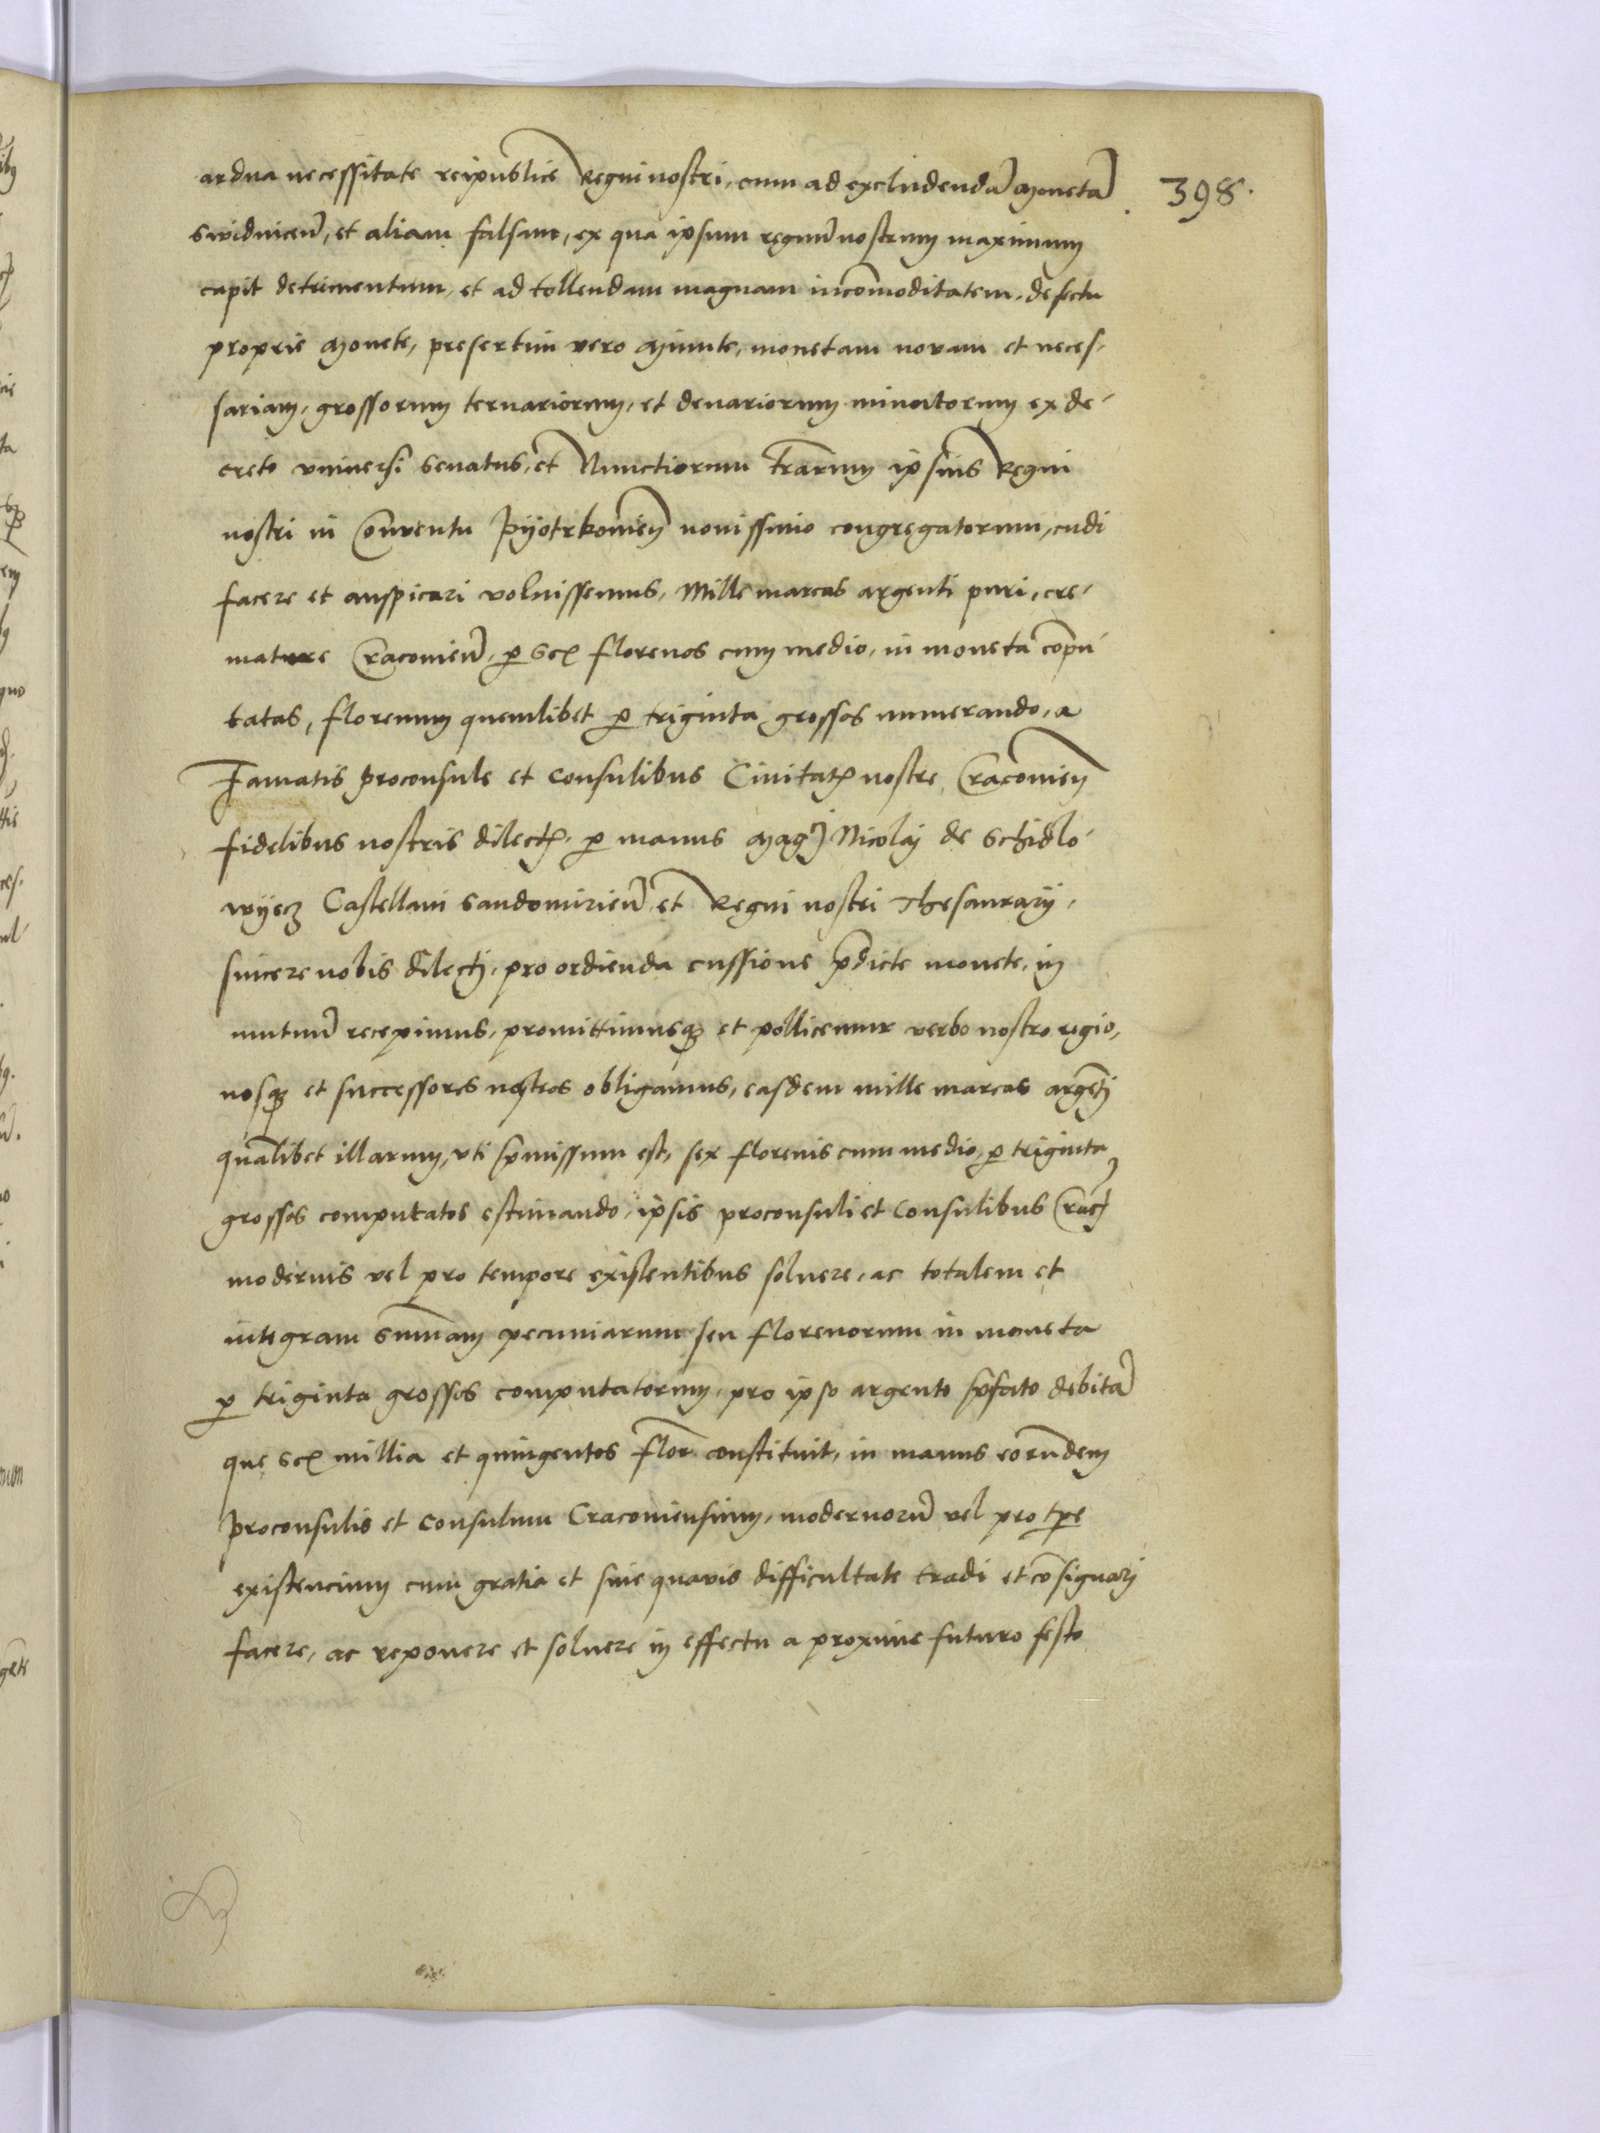 ardua necessitate reipublice Regni nostri, cum ad excludendā Monetā
398.
Swidniceñ, et aliam falsam, ex qua ipsum regnū nostrum maximum
capit detrimentum, et ad tollendam magnam incōmoditatem, defectu
proprie Monete, presertim vero Minute, monetam novam et neces-
sariam, grossorum ternariorum, et denariorum minutorum ex de-
creto vniversi Senatus, et Nunctiorum Trarum ipsius Regni
nostri in Conventu Pyotrkovień novissimo congregatorum, cudi
facere et auspicari voluissemus, Mille marcas argenti puri, cre-
mature Cracovieñ, p Sex florenos cum medio, in moneta cōpu-
tatas, florenum quemlibet p triginta grossos numerando, a
Famatis proconsule et Consulibus Civitatis nostre Cracovień
fidelibus nostris dilectis, p manus Magci Nicolaj de Schidlo-
wyecz Castellani Sandomirieñ et Regni nostri Thesaurarij,
sincere nobis dilecti, pro ordienda cussione pdicte monete, in
mutuū recepimus, promittimusq3 et pollicemur verbo nostro regio,
nosq3 et successores nostros obligamus, easdem mille marcas argēti
quālibet illarum, vti pmissum est, sex florenis cum medio, p triginta
grossos computatos estimando, ipsis proconsuli et Consulibus Crac
modernis vel pro tempore existentibus soluere, ac totalem et
integram Summam pecuniarum seu florenorum in moneta
p triginta grossos computatorum, pro ipso argento pfato debitā
que Sex millia et quingentos flor constituit, in manus eorūdem
proconsulis et Consulum Cracoviensium, modernorū vel pro tpe
existencium cum gratia et sine quavis difficultate tradi et cōsignari
facere, ac reponere et soluere in effectu a proxime futuro festo